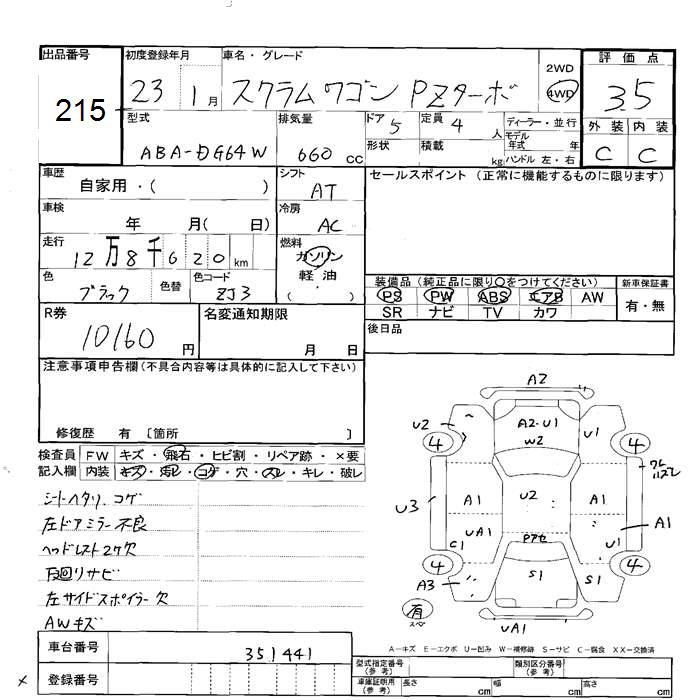 出品番号 初度登録年月 車名・グレード 評価点
215 23 1月 スクラムワゴン PZターボ 2WD 4WD 3.5
型式 排気量 ドア 5 定員 4 人 ディーラー・並行 外装 内装
ABA-DG64W 660 CC 形状 積載 kg モデル年式 年 ハンドル 左・右 C C
車歴 シフト セールスポイント (正常に機能するものに限ります)
自家用・( ) AT
車検 冷房
年 月( 日) AC
走行 燃料
12万8千620km ガソリン
色 色替 色コード 軽油 装備品 (純正品に限り○をつけてください) 新車保証書
ブラック ZJ3 ( ) PS PW ABS エアB AW 有・無
R券 名変通知期限 SR ナビ TV カワ
10160円 月 日 後日品
注意事項申告欄(不具合内容等は具体的に記入して下さい)
修復歴 有 〔箇所 〕
検査員 FW キズ・飛石・ヒビ割・リペア跡・×要
記入欄 内装 キズ・汚レ・コゲ・穴・スレ・キレ・破レ
シートヘタリ、コゲ
左ドアミラー不良
ヘッドレスト2ケ欠
下廻りサビ
左サイドスポイラー欠
AWキズ
A2
U2 A2・U1 U1
4 W2 4
ワレ
ハズレ
U3 A1 U2 A1 A1
UA1 U1
C1 Pアセ
4 4
A3 S1 S1
有
スペ
UA1
A-キズ E-エクボ U-凹み W-補修跡 S-サビ C-腐食 XX-交換済
車台番号 351441
登録番号
型式指定番号(参考) 類別区分番号(参考)
車庫証明用(参考) 長さ cm 幅 cm 高さ cm
×